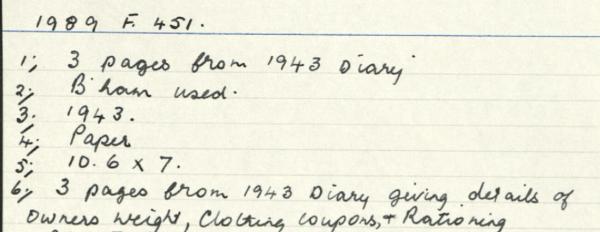 1989 F. 451.
1; 3 pages from 1943 Diary
2; B'ham used.
3; 1943.
4; Paper
5; 10.6 x 7.
6; 3 pages from 1943 Diary giving details of
Owners weight, Clothing coupons, + Rationing